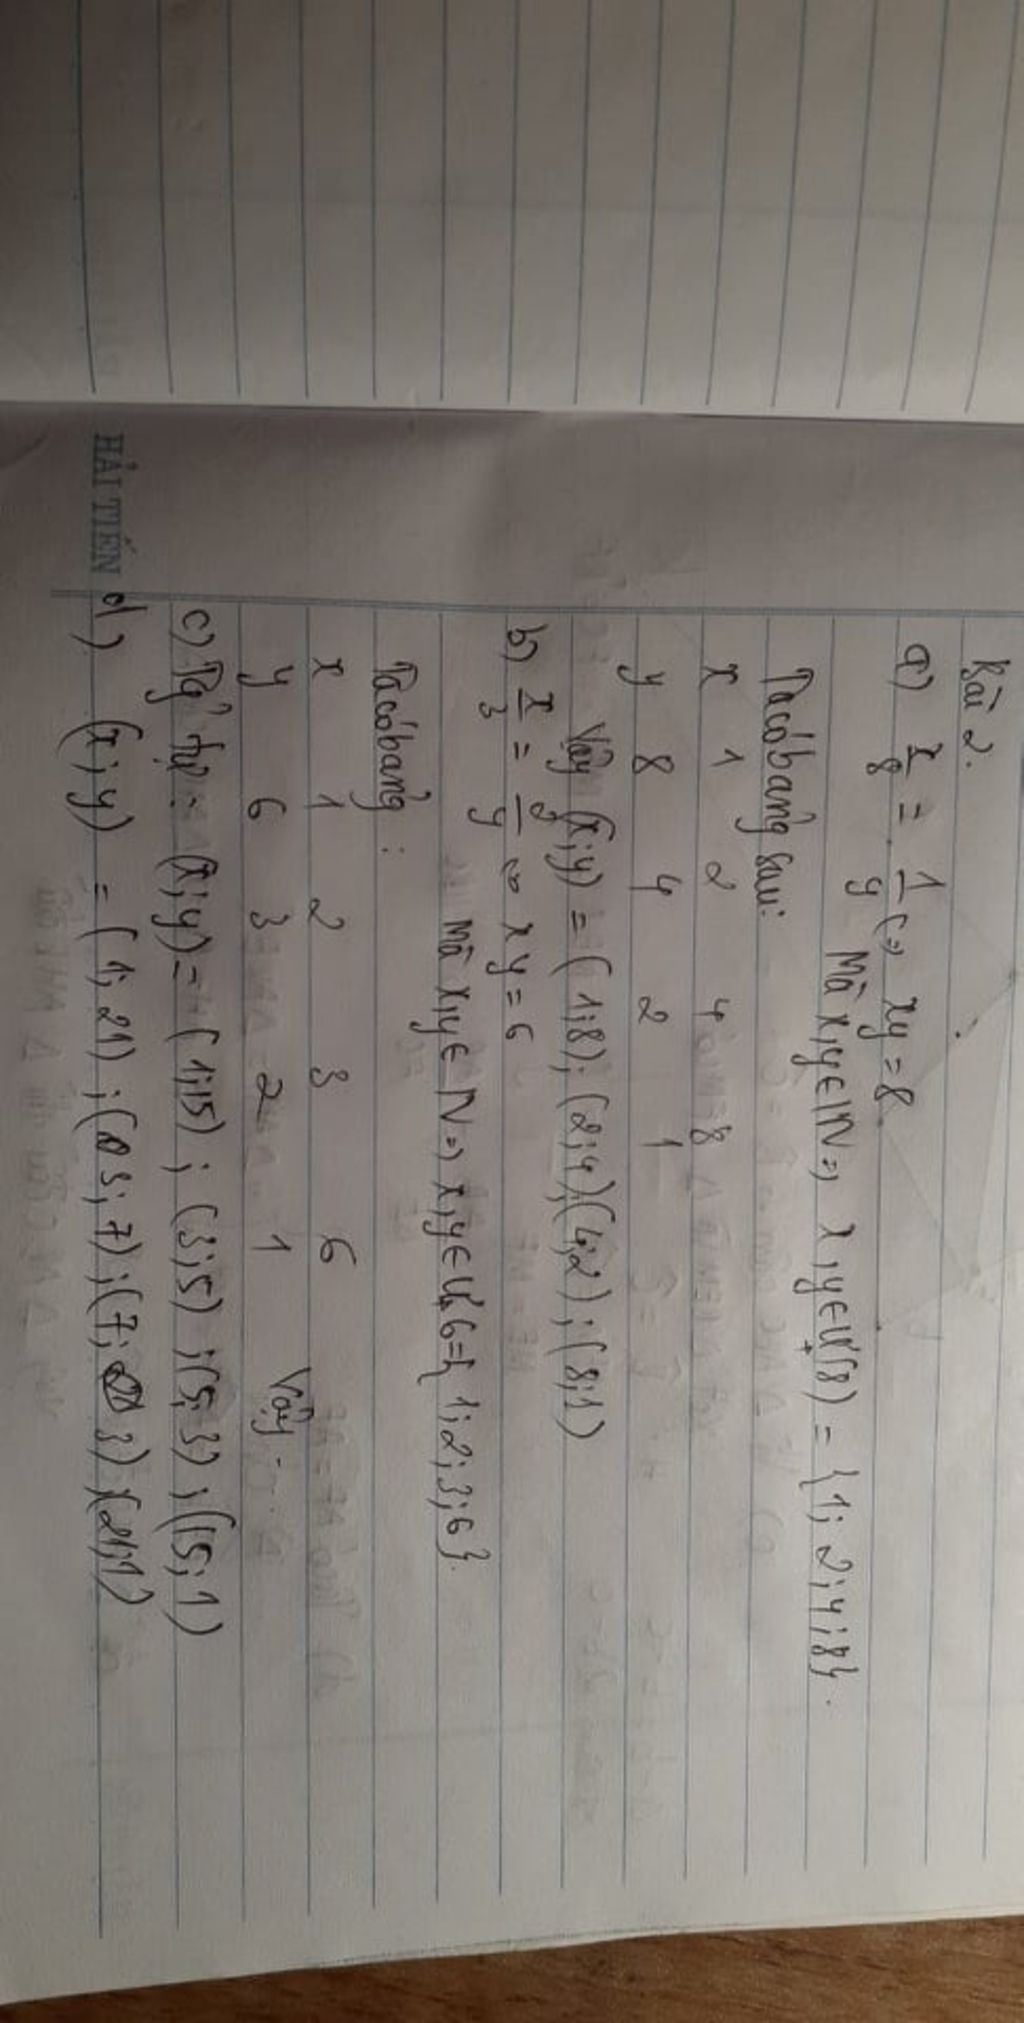 Bài 2.
a) x/8 = 1/y <=> xy = 8
Mà x,y ∈ IN => x,y ∈ Ư(8) = {1; 2; 4; 8}.
Ta có bảng sau:
x 1 2 4 8
y 8 4 2 1
Vậy (x;y) = (1;8); (2;4);(4;2); (8;1)
b) x/3 = 2/y <=> xy = 6
Mà x,y ∈ IN => x,y ∈ Ư6={ 1; 2; 3; 6}.
Ta có bảng:
x 1 2 3 6
y 6 3 2 1 Vậy ...
c) Tg² tự: (x;y) = (1;15); (3;5); (5;3); (15;1)
d) (x;y) = (1;21); (3;7); (7; 3) (21;1)
HẢI TIẾN